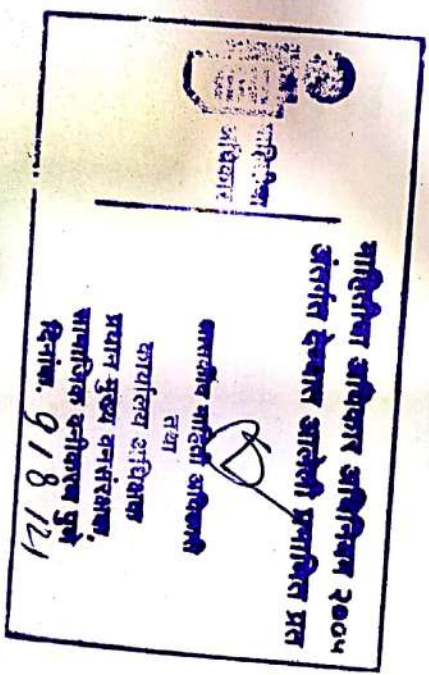 माहितीचा अधिकार अधिनियम २००५
अंतर्गत देण्यात आलेली प्रमाणित प्रत
माहितीचा
अधिकार
शासकीय माहिती अधिकारी
तथा
कार्यालय अधिक्षक
प्रधान मुख्य वनसंरक्षक,
सामाजिक वनीकरण पुणे
दिनांक. 9/8/21